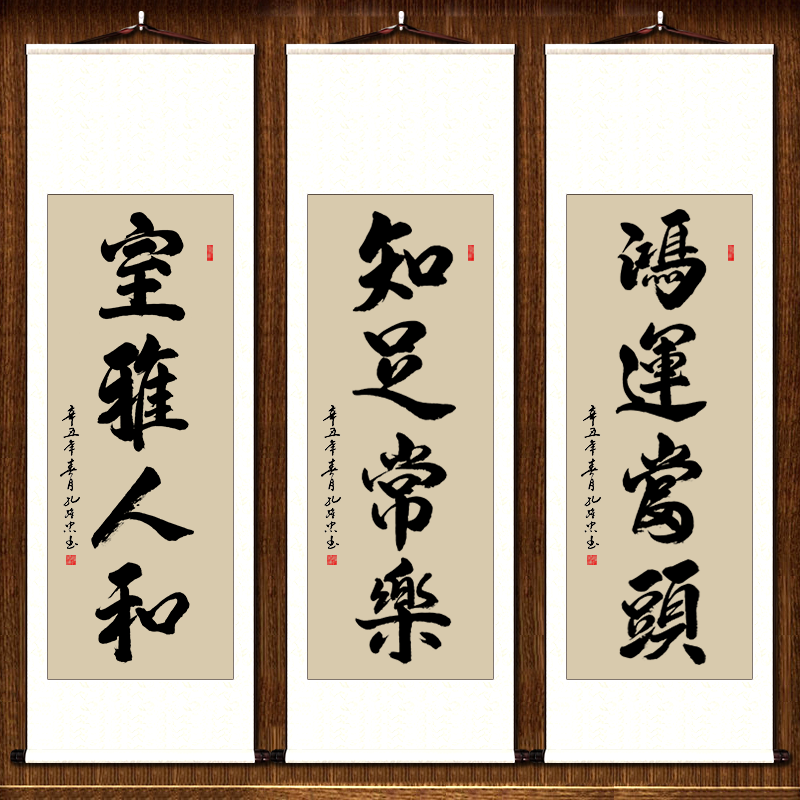 鴻運當頭
辛丑年春月孔
知足常樂
辛丑年春月孔
室雅人和
辛丑年春月孔